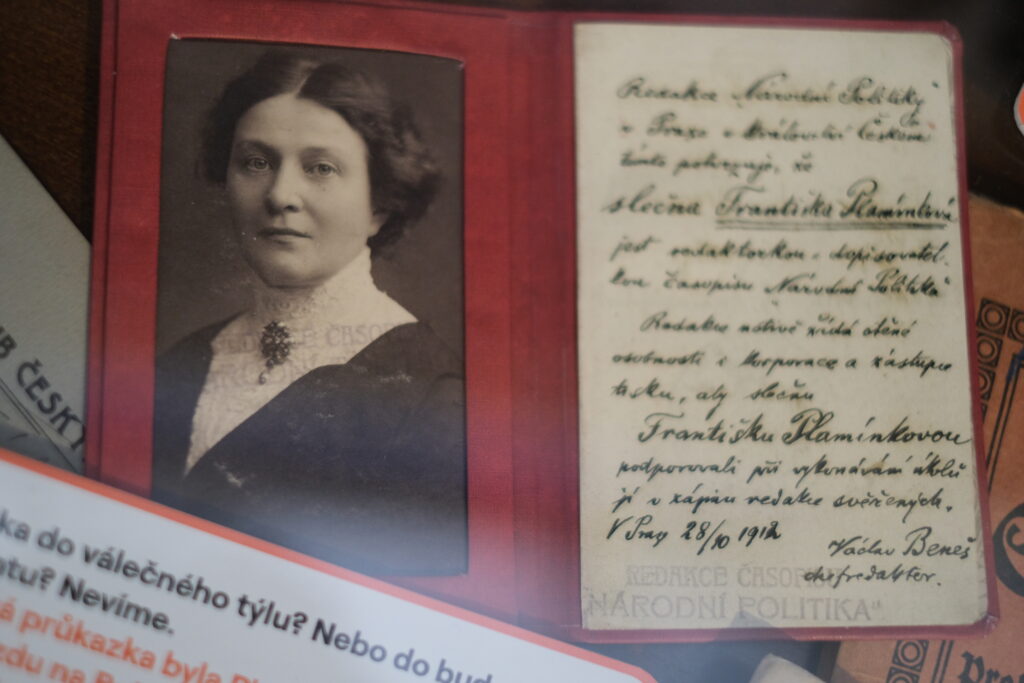 Redakce „Národní Politiky"
v Praze v Království Českém
tímto potvrzuje, že
slečna Františka Plamínková
jest redaktorkou a dopisovatel-
kou časopisu „Národní Politika"
Redakce uctivě žádá ctěné
osobnosti i korporace a zástupce
tisku, aby slečnu
Františku Plamínkovou
podporovali při vykonávání úkolů
jí v zájmu redakce svěřených.
V Praze 28/10 1912
Václav Beneš
chefredaktor.
REDAKCE ČASOPISU
„NÁRODNÍ POLITIKA"
REDAKCE ČASO
NÁRODNÍ
B ČESKÝ
ka do válečného týlu? Nebo do bud
ntu? Nevíme.
á průkazka byla
edu na